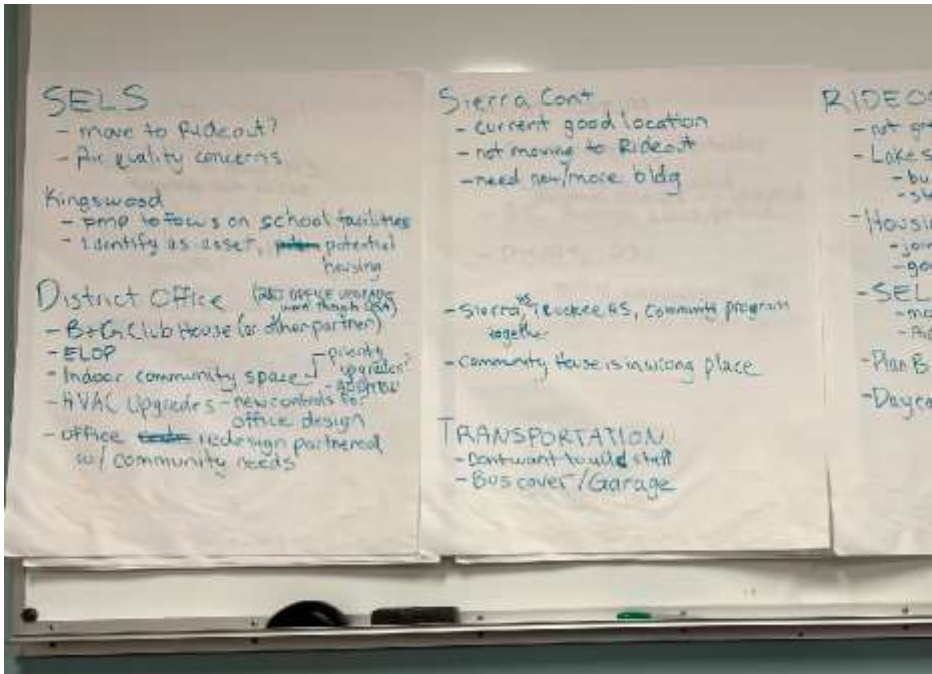 SELS
- move to Rideout?
- Air quality concerns
Kingswood
- FMP to focus on school facilities
- Identify as asset, potential
housing
District Office
- B+G Club House (or other partner)
- ELOP
- Indoor community space
- priority
upgrades
- HVAC Upgrades - new controls for
office design
- office redesign partnered
w/ community needs
Sierra Cont
- current good location
- not moving to Rideout
- need new/more bldg
- Sierra, Truckee HS, community program
together
- Community House is in wrong place
TRANSPORTATION
- Dont want to add staff
- Bus cover/Garage
RIDEO
- not gr
- Lake S
- bu
- Housi
- join
- go
- SEL
- mo
- Plan B
- Dayca